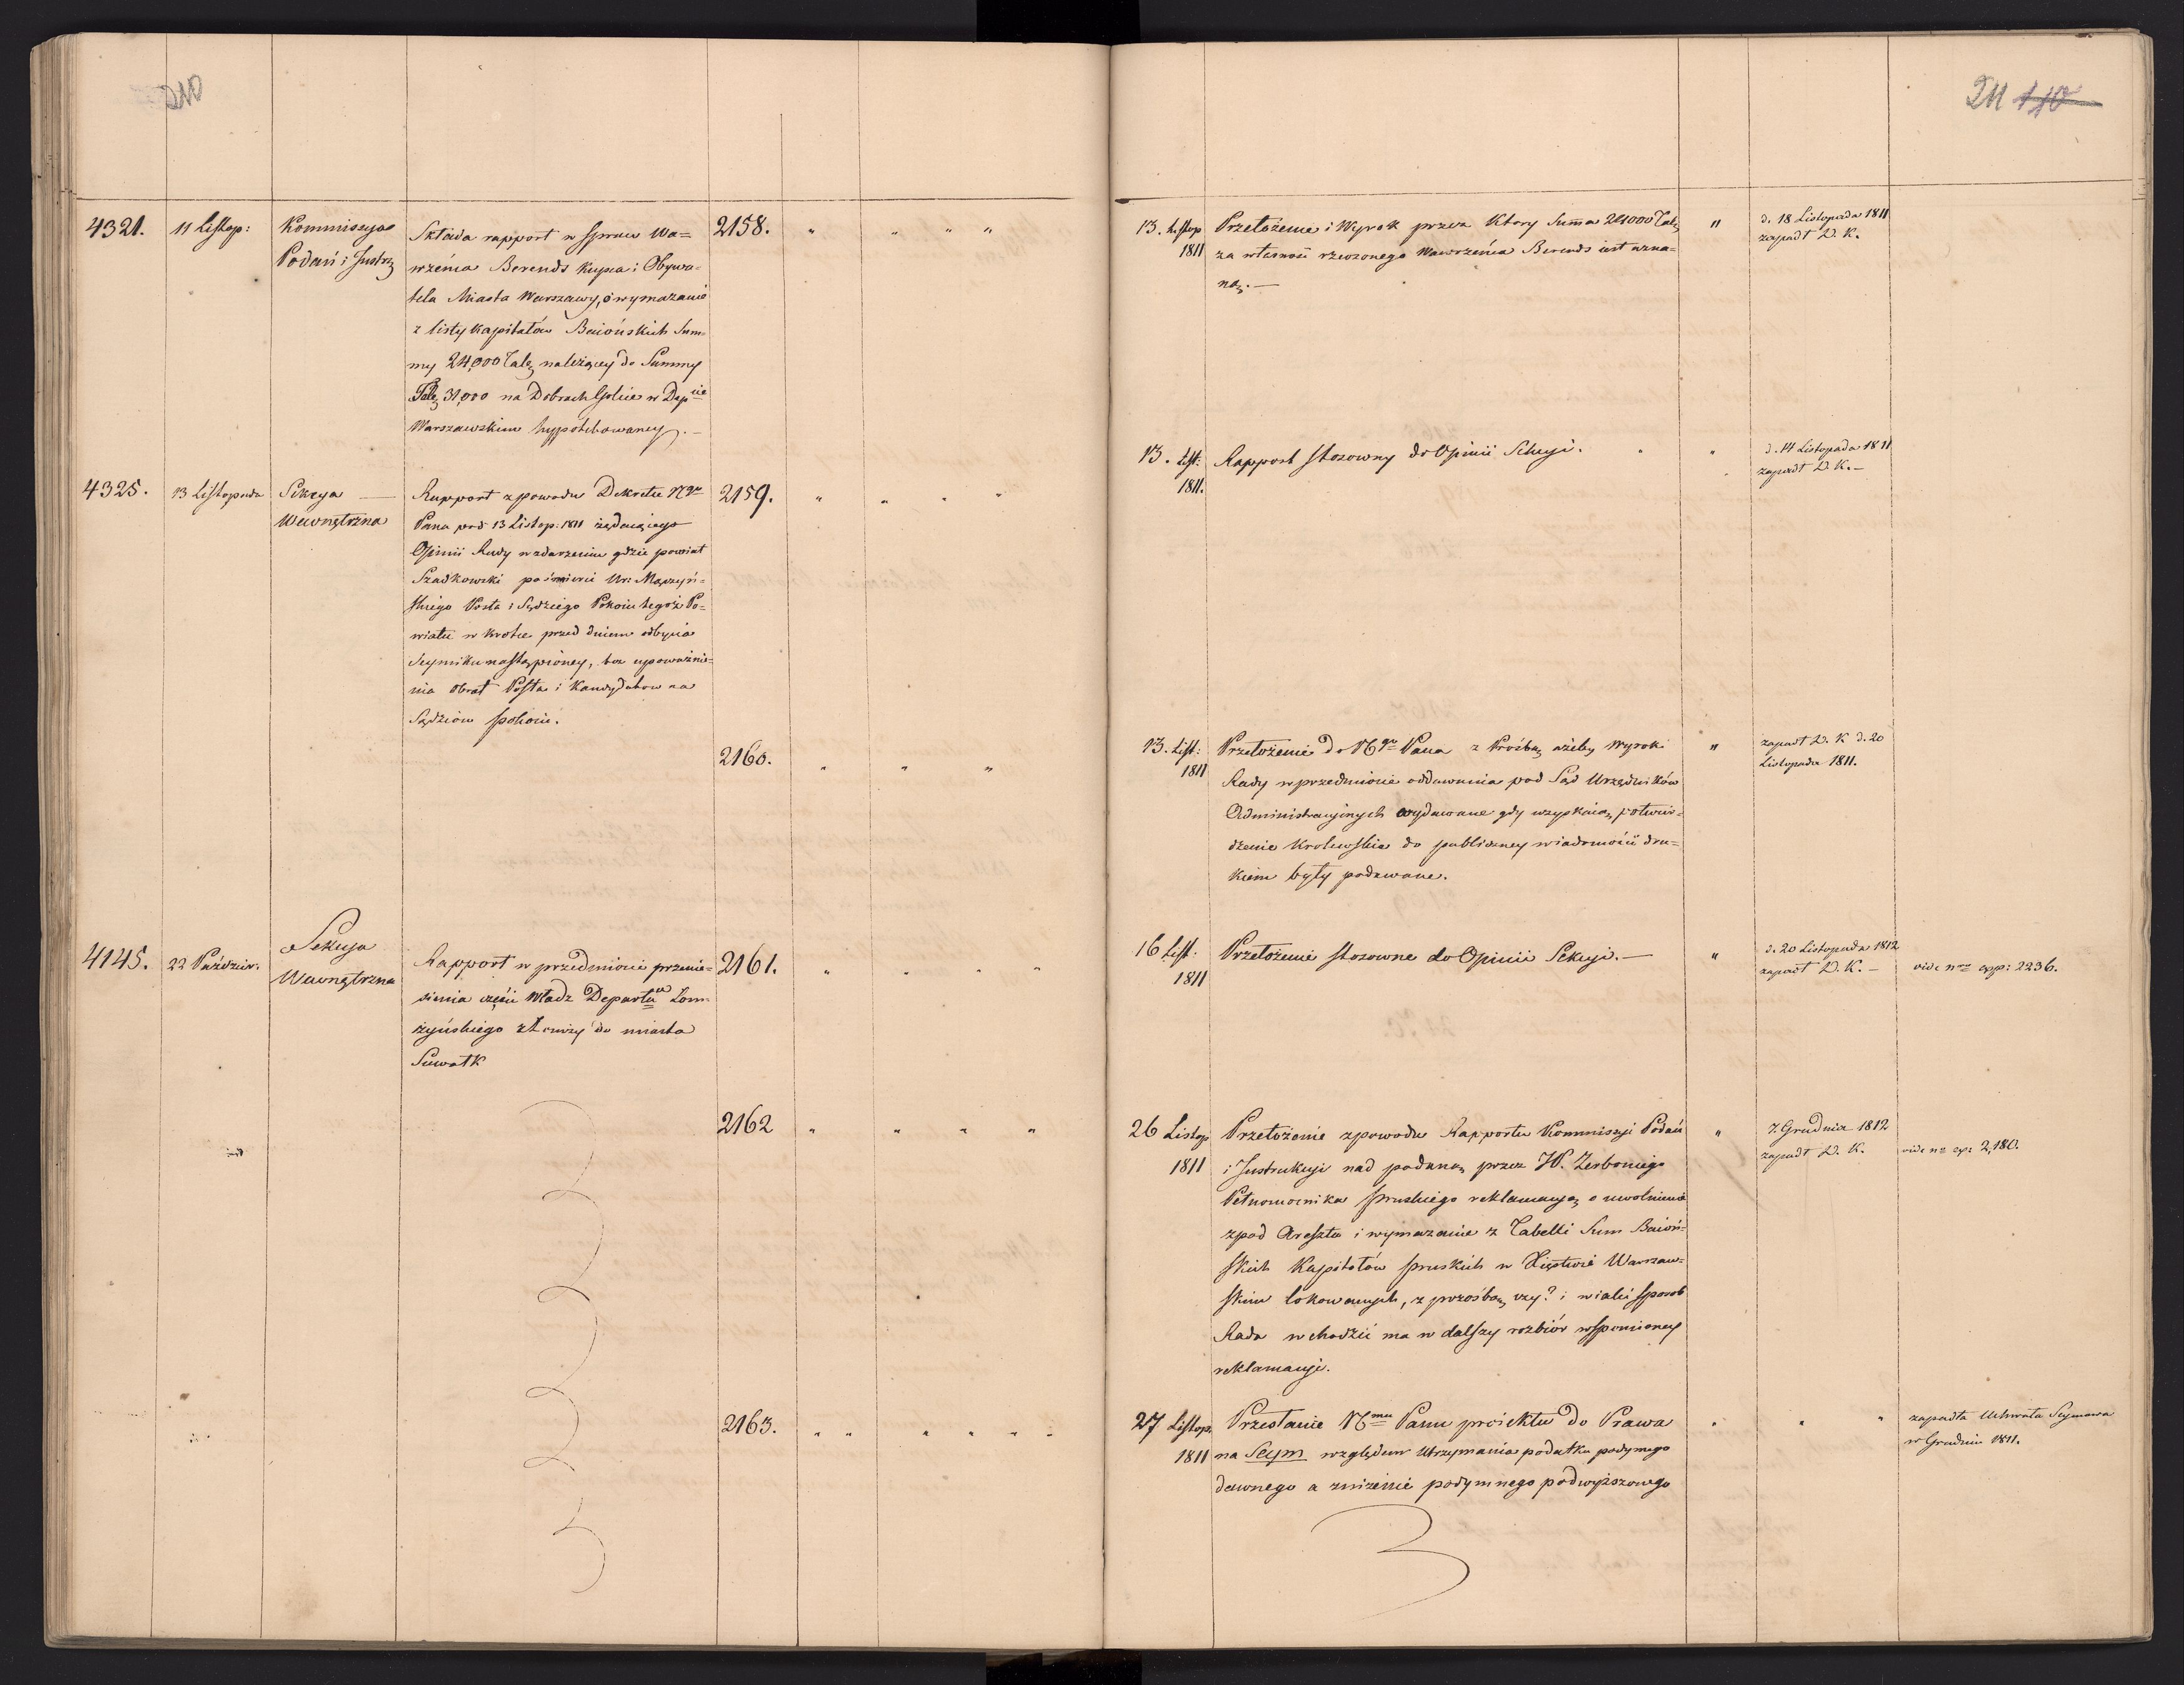 211 110
4321.
11 Listop:
Kommissya
Podań i Instr:
Składa rapport w sprawie Wa=
wrzeńca Berends Kupca i Obywa-
tela Miasta Warszawy, o wymazanie
z listy Kapitałów Baiońskich Sum-
my 24,000 Tal: należącey do Summy
Tal: 31,000 na Dobrach w Dep
Warszawskim hypotekowaney. –
2158.
13. Listop
1811
Przełożenie i Wyrok przez Ktory Summa 24000 Tal:
za własność rzeczonego Wawrzeńca Berends iest uzna-
ną. —
d. 18 Listopada 1811
zapadł D. K.
4325.
13 Listopada
Sekcya —
Wewnętrzna
Rapport z powodu Dekretu N
Pana pod 13 Listop: 1811 żądaiącego
Opinii Rady w zdarzeniu gdzie powiat
Szadkowski po śmierci Ur:
skiego Posła i Sędziego Pokoiu tegoż Po=
wiatu w krotce przed dniem odbycia
Seymiku nastąpioney, bez upoważnie-
nia obrał Posła i Kandydatow na
Sędziow pokoiu.
2159.
13. List:
1811.
Rapport stosowny do Opinii Sekcyi.
d. 14 Listopada 1811
zapadł D. K. –
2160.
13. List:
1811
Przełożenie do N Pana z Prośbą ażeby Wyroki
Rady w przedmiocie oddawania pod Sąd Urzędników
Administracyinych wydawane gdy uzyskaią potwier-
dzenie Krolewskie do publiczney wiadomości dru-
kiem były podawane.
zapadł D. K. d. 20
Listopada 1811.
4145.
22 Paździer.
Sekcya
Wewnętrzna
Rapport w przedmiocie przenie-
sienia części Władz Departu Łom-
żyńskiego z Łomży do miasta
Suwałk
2161.
16 List:
1811
Przełożenie stosowne do Opinii Sekcyi. —
d. 20 Listopada 1812
zapadł D. K. –
vide nro exp: 2236.
2162
26 Listop
1811
Przełożenie z powodu Rapportu Kommissyi Podań
i Instrukcyi nad podaną przez W. Zerboniego
Pełnomocnika pruskiego reklamacyą o uwolnienie
z pod Aresztu i wymazanie z Tabelli Sum Baioń-
skich Kapitałów pruskich w Xięstwie Warszaw-
skim lokowanych, z prośbą, czy? i w iaki sposob
Rada wchodzić ma w dalszy rozbiór wspomnioney
reklamacyi.
7. Grudnia 1812
zapadł D. K.
vide no exp: 2,180.
2163.
27 Listop.
1811
Przesłanie N Panu proiektu do Prawa
na Seym względem Utrzymania podatku podymnego
dawnego a zniżenie podymnego podwyższonego
zapadła Uchwała Seymowa
w Grudniu 1811.